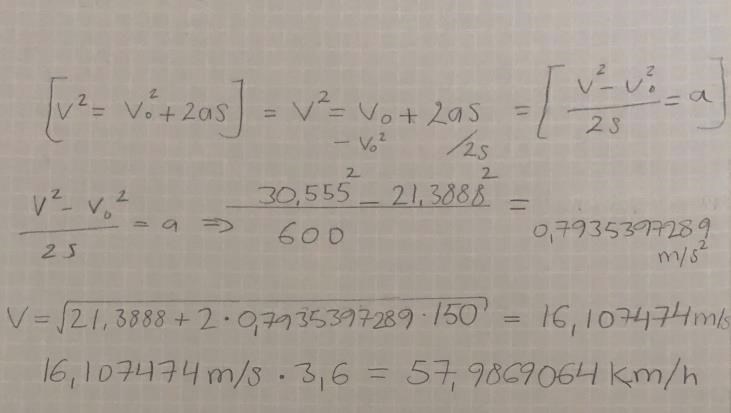 [V² = V₀² + 2as] = V² = V₀ + 2as = [V² - V₀² / 2s = a]
- V₀² /2s
V² - V₀² / 2s = a ⇒ 30,555² - 21,3888² / 600 = 0,7935397289 m/s²
V = √21,3888 + 2 · 0,7935397289 · 150 = 16,107474 m/s
16,107474 m/s · 3,6 = 57,9869064 km/h